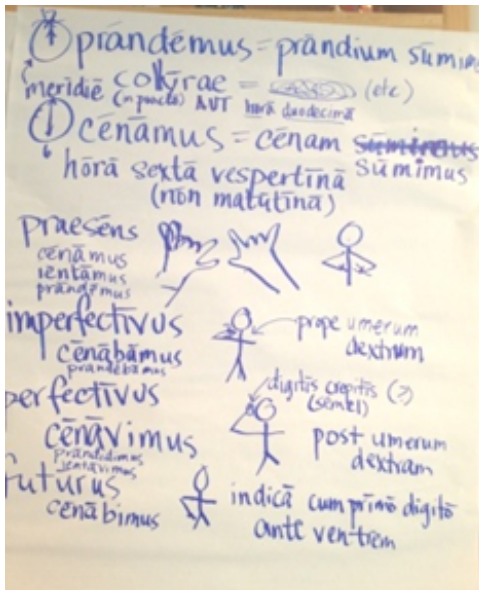 prandēmus = prāndium sūmim
merīdiē collȳrae = (etc)
(in puncto) AUT hōrā duodecimā
cēnāmus = cēnam sūmimus
sūmimus
hōrā sextā vespertīnā
(nōn matutīnā)
praesēns
cēnāmus
ientāmus
prandēmus
imperfectīvus
cēnābāmus
prandēbāmus
prope umerum
dextrum
perfectīvus
cēnāvimus
prandidimus
ientavimus
digitīs crepitīs (?)
(semel)
post umerum
dextram
futurus
cenābimus
indicā cum prīmō digitō
ante ventrem